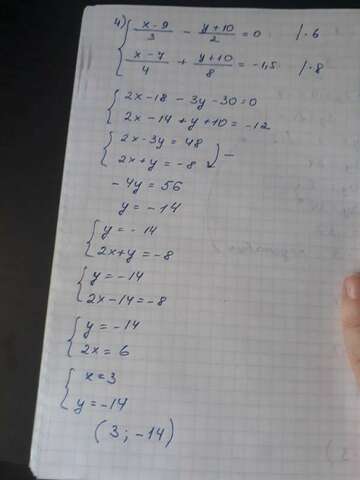 4) { (x-9)/3 - (y+10)/2 = 0 /·6
{ (x-7)/4 + (y+10)/8 = -1,5 /·8
{ 2x-18 - 3y-30=0
{ 2x-14 + y+10 = -12
{ 2x-3y = 48
{ 2x+y = -8 ) -
-4y = 56
y = -14
{ y = -14
{ 2x+y = -8
{ y = -14
{ 2x-14 = -8
{ y = -14
{ 2x = 6
{ x = 3
{ y = -14
(3 ; -14)